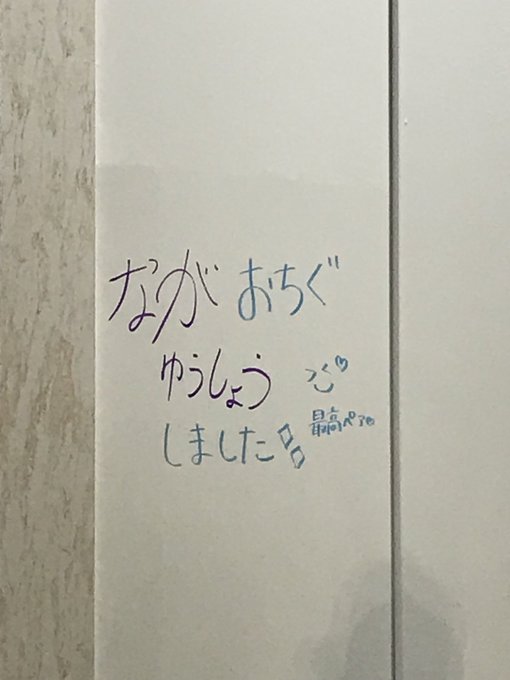 ながおちぐ
ゆうしょう
しました!!
最高ペア